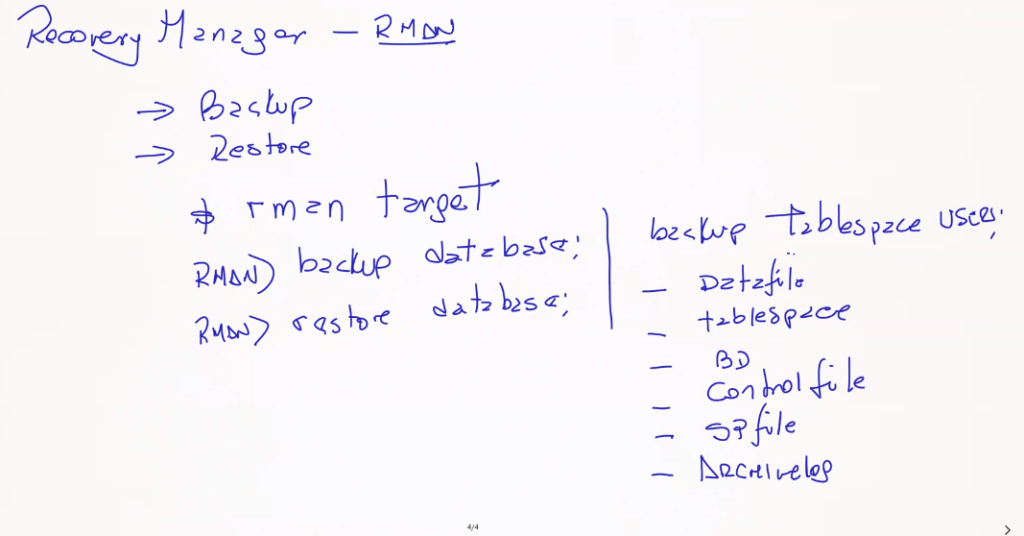 Recovery Manager – RMAN
→ Backup
→ Restore
$ rman target
RMAN> backup database;
RMAN> restore database;
backup tablespace users;
– Datafile
– tablespace
– BD
– Control file
– SPfile
– Archivelog
4/4